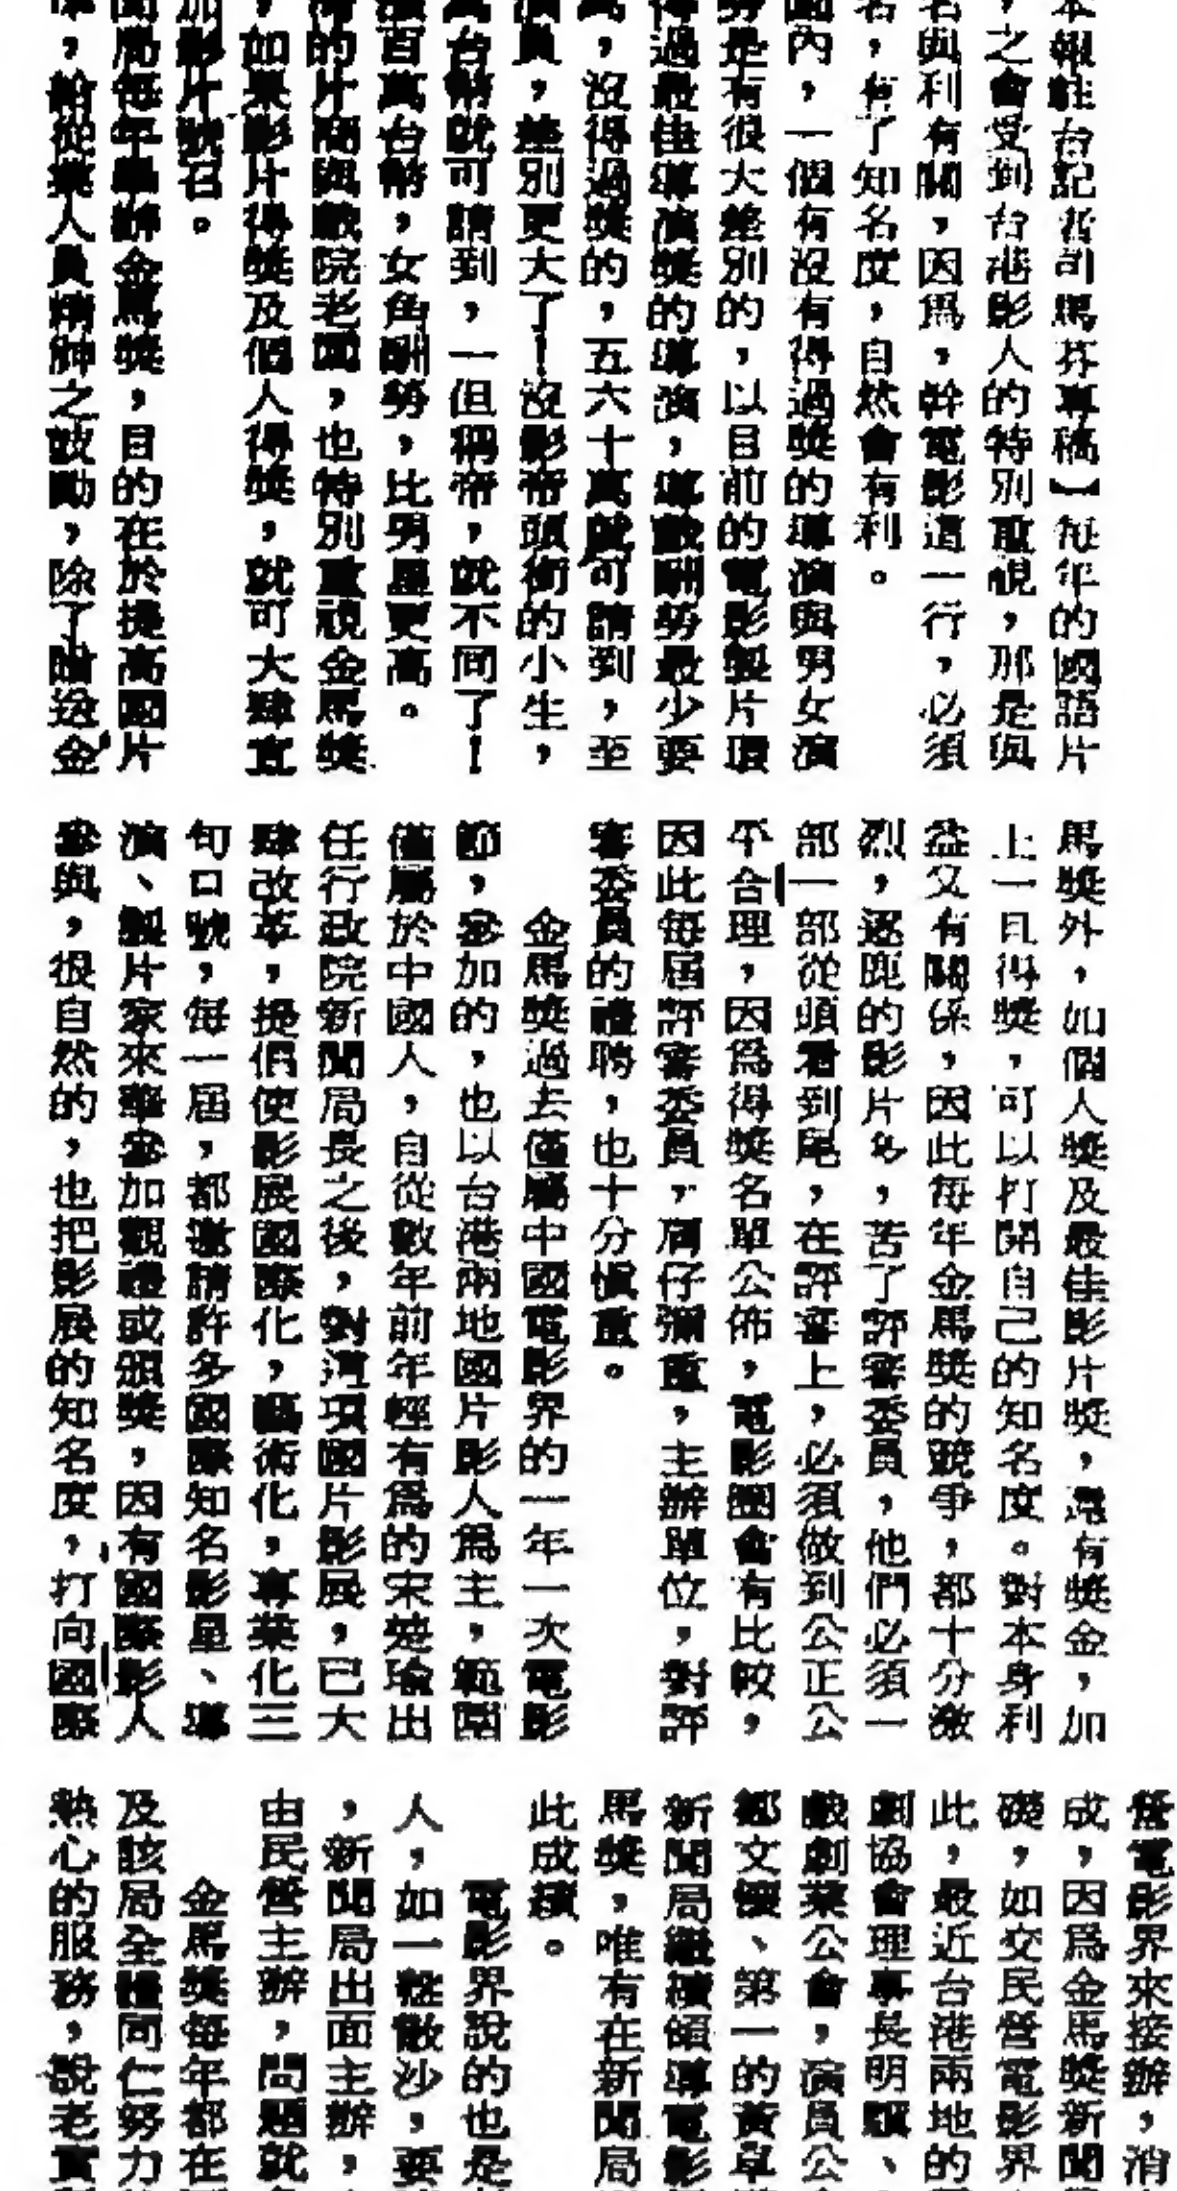 本報駐台記者司馬芬專稿】每年的國語片
，之會受到台港影人的特別重視，那是與
名與利有關，因爲，幹電影這一行，必須
名，有了知名度，自然會有利。
圈內，一個有沒有得過獎的導演與男女演
勞是有很大差別的，以目前的電影製片環
得過最佳導演獎的導演，導戲酬勞最少要
萬，沒得過獎的，五六十萬就可請到，至
演員，差別更大了！沒影帝頭銜的小生，
萬台幣就可請到，一但稱帝，就不同了！
漲百萬台幣，女角酬勞，比男星更高。
灣的片商與戲院老闆，也特別重視金馬獎
，如果影片得獎及個人得獎，就可大肆宣
加影片號召。
聞局每年舉辦金馬獎，目的在於提高國片
準，給從業人員精神之鼓勵，除了贈送金
馬獎外，如個人獎及最佳影片獎，還有獎金，加
上一旦得獎，可以打開自己的知名度。對本身利
益又有關係，因此每年金馬獎的競爭，都十分激
烈，逐鹿的影片多，苦了評審委員，他們必須一
部一部從頭看到尾，在評審上，必須做到公正公
平合理，因爲得獎名單公佈，電影圈會有比較，
因此每屆評審委員，肩仔彌重，主辦單位，對評
審委員的禮聘，也十分慎重。
金馬獎過去僅屬中國電影界的一年一次電影
節，參加的，也以台港兩地國片影人爲主，範圍
僅屬於中國人，自從數年前年輕有爲的宋楚瑜出
任行政院新聞局長之後，對這項國片影展，已大
肆改革，提倡使影展國際化，藝術化，專業化三
句口號，每一屆，都邀請許多國際知名影星、導
演、製片家來華參加觀禮或頒獎，因有國際影人
參與，很自然的，也把影展的知名度，打向國際
營電影界來接辦，消
成，因爲金馬獎新聞
礎，如交民營電影界
此，最近台港兩地的
劇協會理事長明驥、
戲劇業公會，演員公
鄒文懷、第一的黃卓
新聞局繼續領導電影
馬獎，唯有在新聞局
此成績。
電影界說的也是
人，如一盤散沙，要
，新聞局出面主辦，
由民營主辦，問題就
金馬獎每年都在
及該局全體同仁努力
熱心的服務，說老實